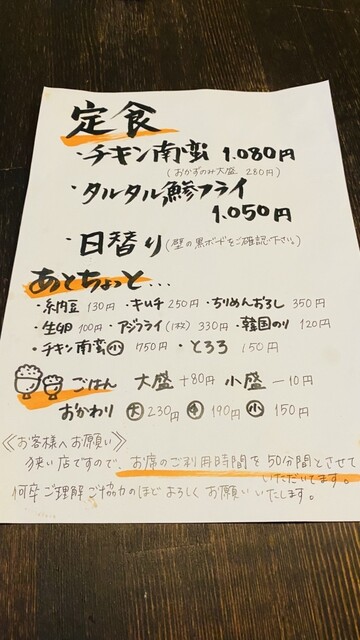 定食
・チキン南蛮 1.080円
(おかずのみ大盛 280円)
・タルタル鯵フライ
1.050円
・日替り(壁の黒ボードをご確認下さい)
あとちょっと...
・納豆 130円 ・キムチ 250円 ・ちりめんおろし 350円
・生卵 100円 ・アジフライ(1枚) 330円 ・韓国のり 120円
・チキン南蛮小 750円 ・とろろ 150円
ごはん 大盛+80円 小盛-10円
おかわり 大230円 中190円 小150円
《お客様へお願い》
狭い店ですので、お席のご利用時間を50分間とさせて
いただいてます。
何卒ご理解ご協力のほどよろしくお願いいたします。